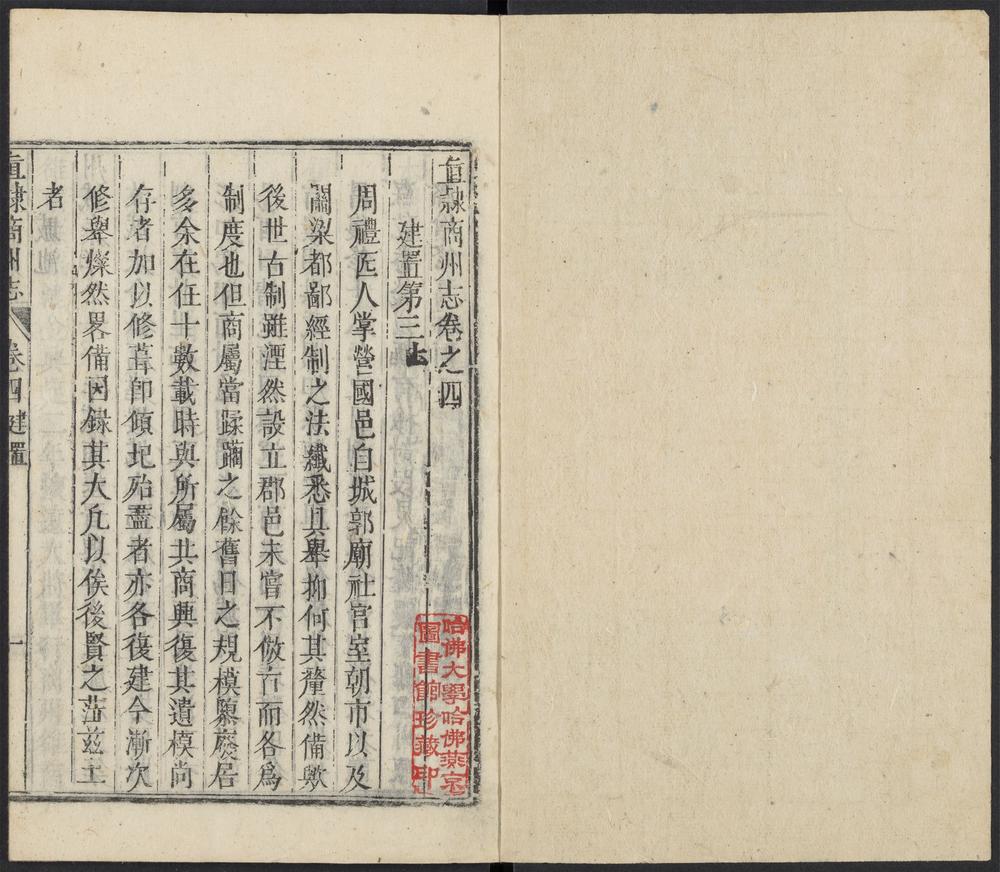 直隸商州志卷之四
建置第三上
周禮匠人掌營國邑自城郭廟社宮室朝市以及
關梁都鄙經制之法纖悉具舉抑何其釐然備歟
後世古制雖湮然設立郡邑未嘗不倣古而各爲
制度也但商屬當蹂躪之餘舊日之規模隳廢居
多余在任十數載時與所屬共商興復其遺模尚
存者加以修葺卽傾圯殆盡者亦各復建今漸次
修舉燦然畧備因錄其大凡以俟後賢之莅茲土
者
直隸商州志 卷四 建置 一
哈佛大學哈佛燕京
圖書館珍藏印